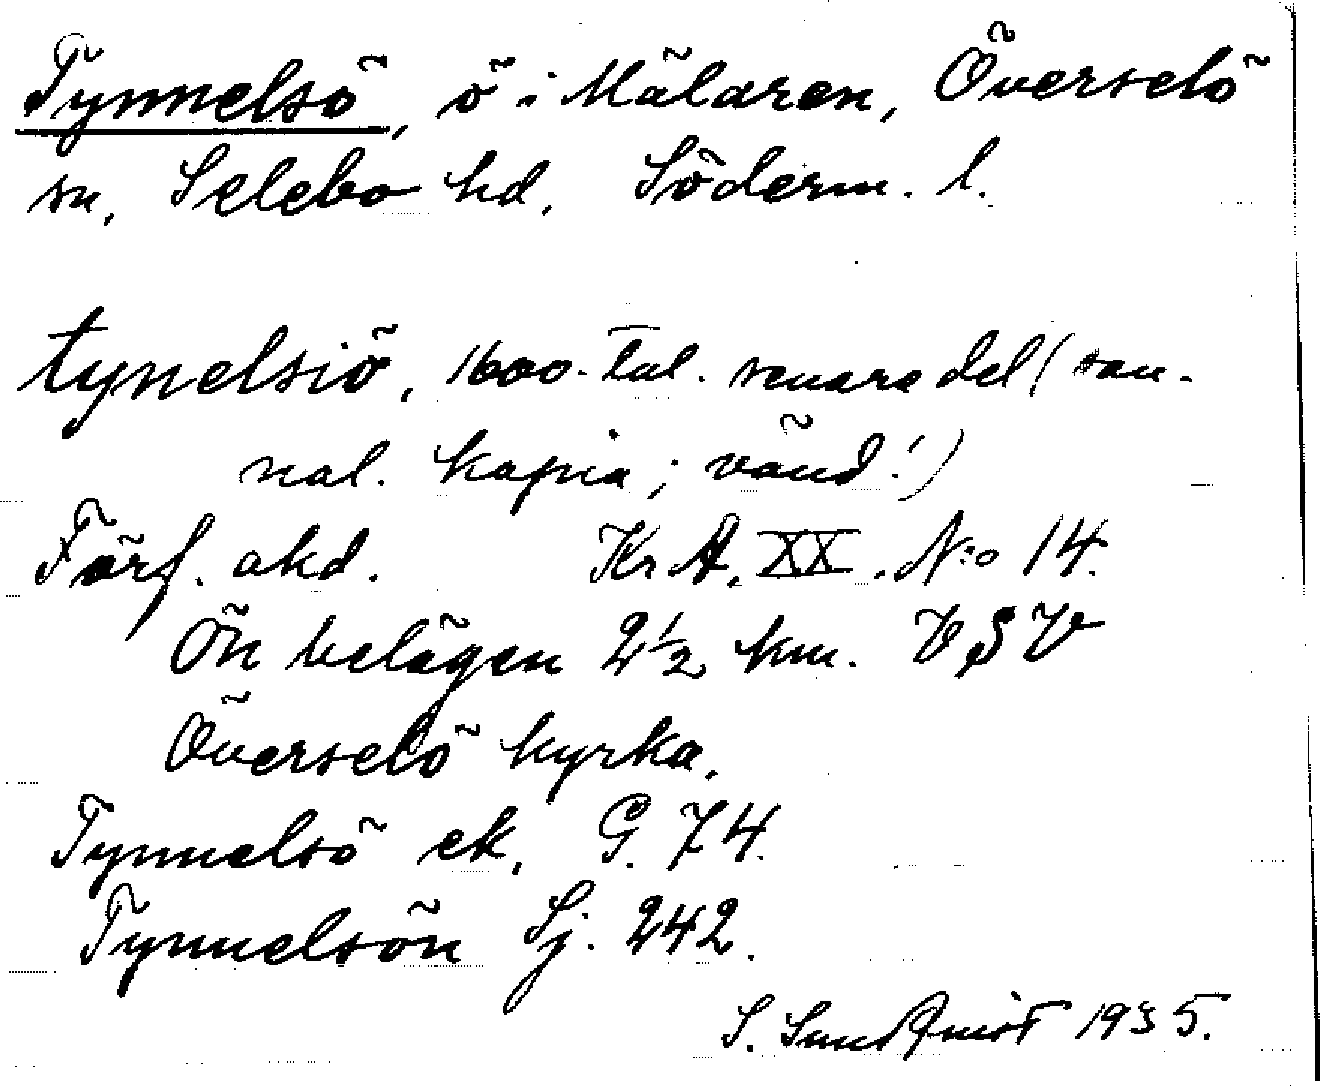 Tynnelsö, ö i Mälaren, Överselö
sn, Selebo hd, Söderm. l.
tynelsiö, 1600-tal. senare del (san-
nol. kopia; vänd!)
Förf. okd. Kr.A. XX. N:o 14.
Ön belägen 2 1/2 km. VSV
Överselö kyrka.
Tynnelsö ek, G. 74.
Tynnelsön Sj. 242.
S. Sundquist 1935.